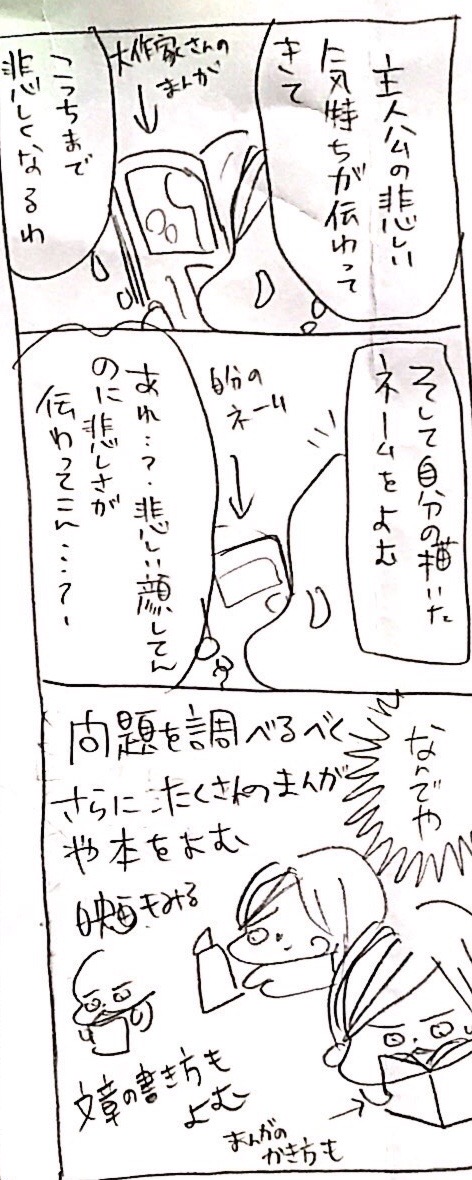 主人公の悲しい
気持ちが伝わって
きて
大作家さんの
まんが
こっちまで
悲しくなるわ
そして自分の描いた
ネームをよむ
自分の
ネーム
あれ…?悲しい顔してん
のに悲しさが
伝わってこん…?
なんでや
問題を調べるべく
さらにたくさんのまんが
や本をよむ
映画もみる
文章の書き方も
よむ
まんがの
かき方も